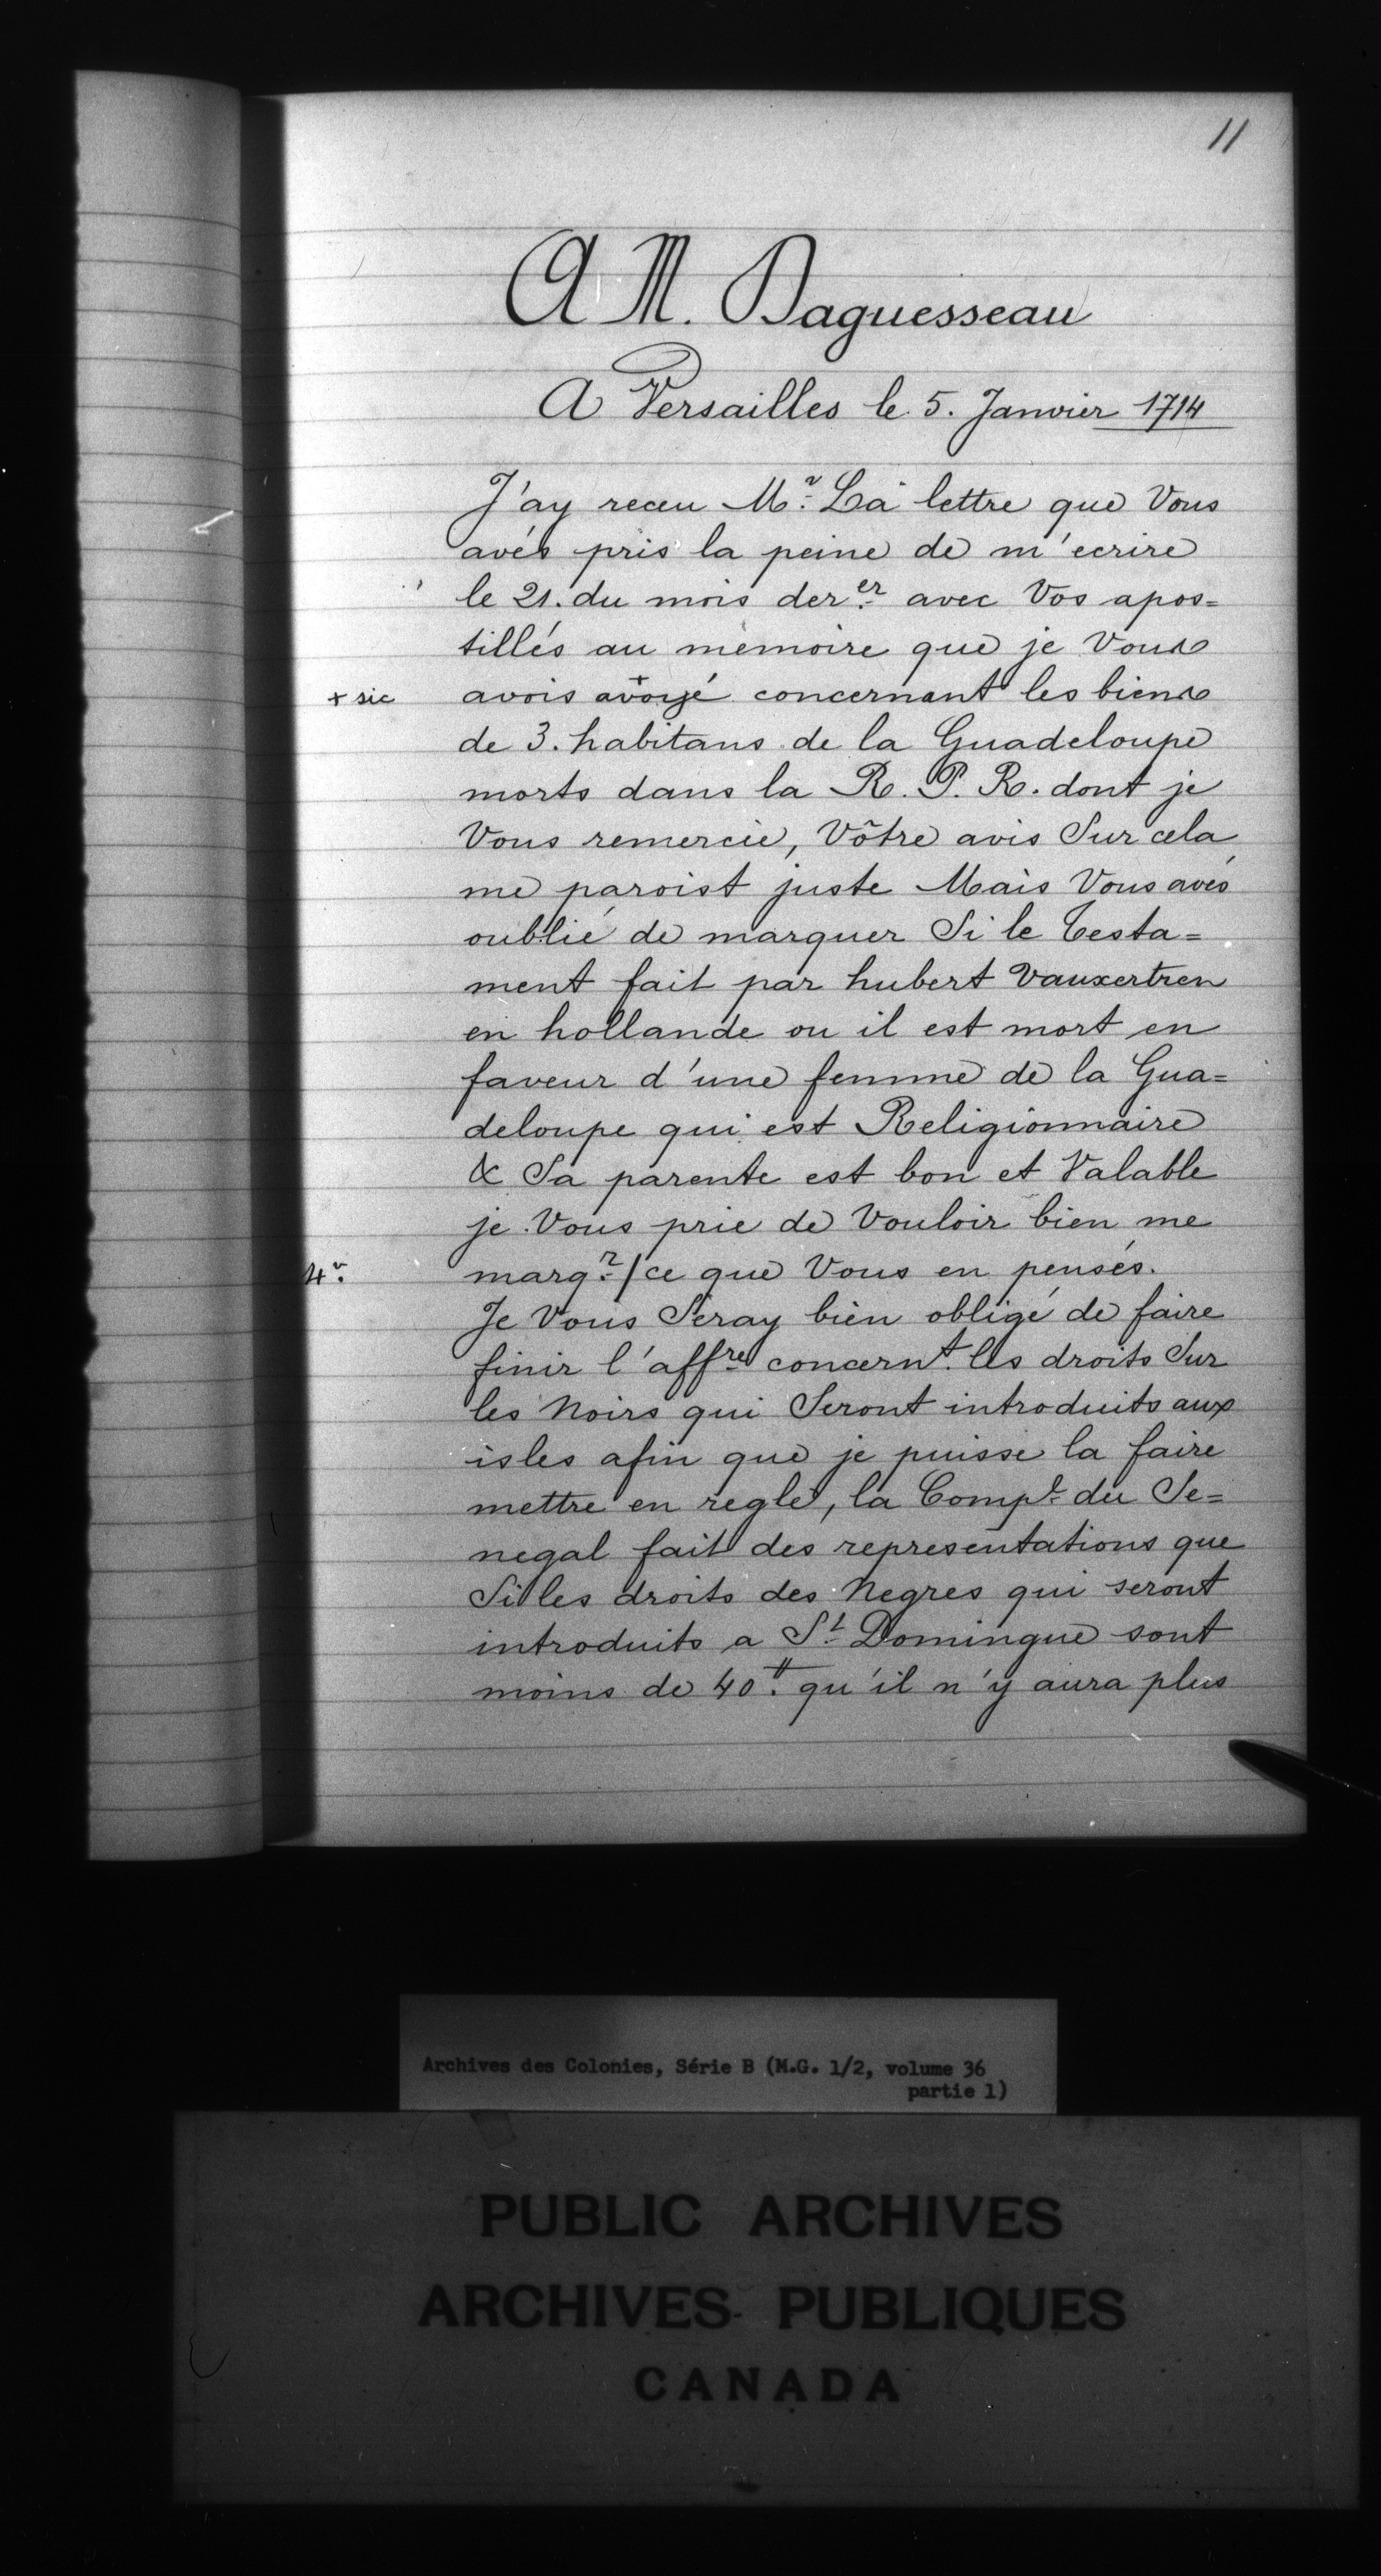 11
A M. Daguesseau
A Versailles le 5. Janvier 1714
J'ay receu Mr. La lettre que Vous
avés pris la peine de m'ecrire
le 21. du mois derer. avec Vos apos=
tillés au memoire que je Vous
+ sic avois avoyé + concernant les biens
de 3. habitans de la Guadeloupe
morts dans la R. P. R. dont je
Vous remercie, Vôtre avis Sur cela
me paroist juste Mais Vous avés
oublié de marquer Si le Testa=
ment fait par hubert Vauxertren
en hollande ou il est mort en
faveur d'une femme de la Gua=
deloupe qui est Religionnaire
& Sa parente est bon et Valable
je Vous prie de Vouloir bien me
4v. marqr. / ce que Vous en pensés.
Je Vous Seray bien obligé de faire
finir l'affre concernt. les droits Sur
les Noirs qui Seront introduits aux
isles afin que je puisse la faire
mettre en regle, la Compe. du Se=
negal fait des representations que
Si les droits des Negres qui seront
introduits a St. Domingue sont
moins de 40.₶ qu'il n'y aura plus
Archives des Colonies, Série B (M.G. 1/2, volume 36
partie 1)
PUBLIC ARCHIVES
ARCHIVES PUBLIQUES
CANADA